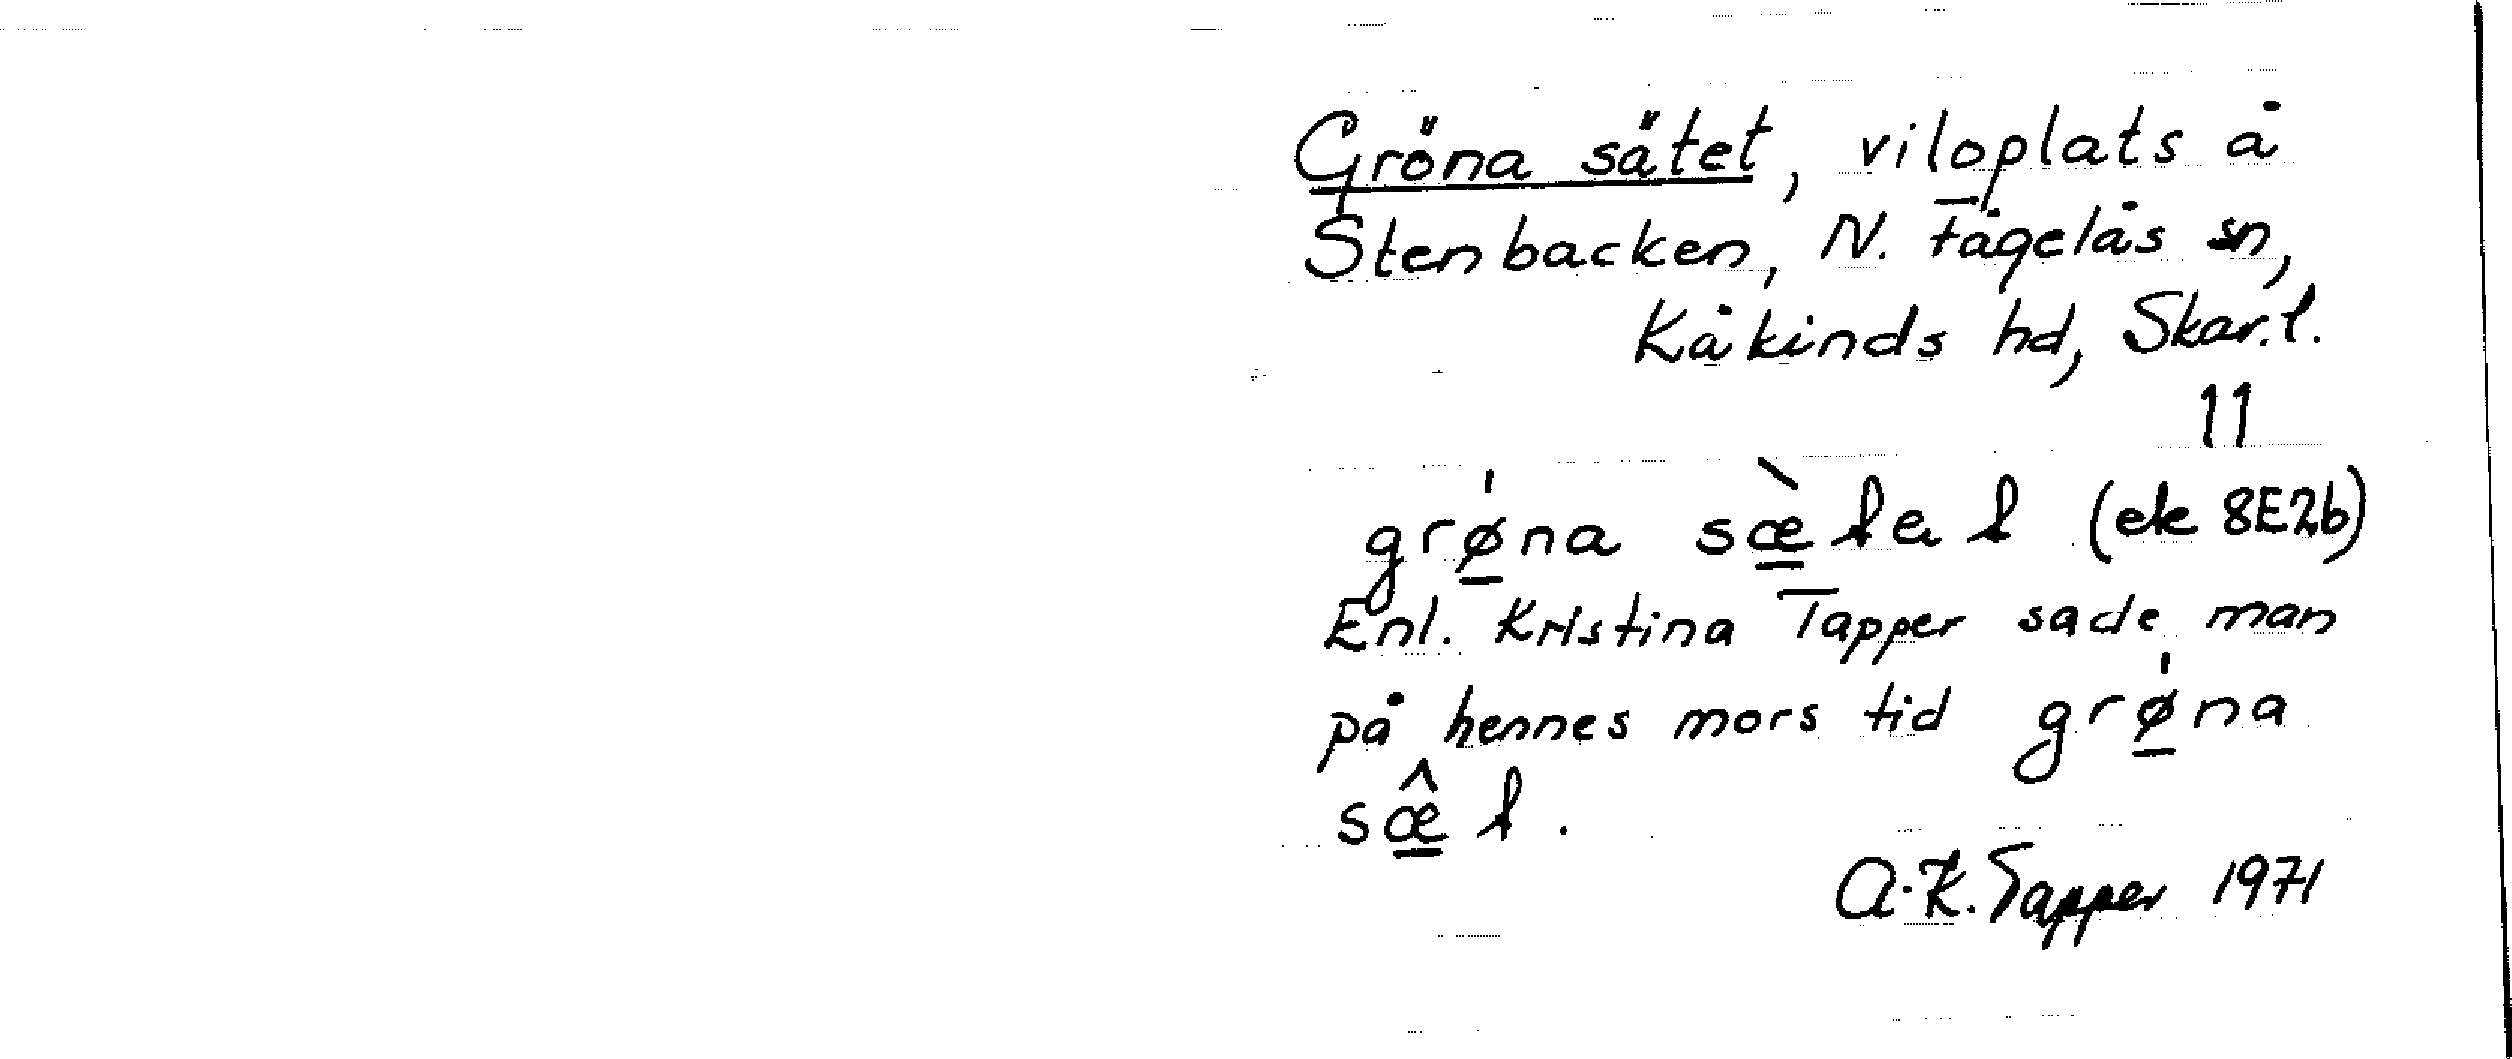 Gröna sätet, viloplats å
Stenbacken, N. Fågelås sn,
Kåkinds hd, Skar.l.
11
grǿ̱na (ek 8E2b)
Enl. Kristina Tapper sade man
på hennes mors tid grǿ̱na
A.K. Tapper 1971